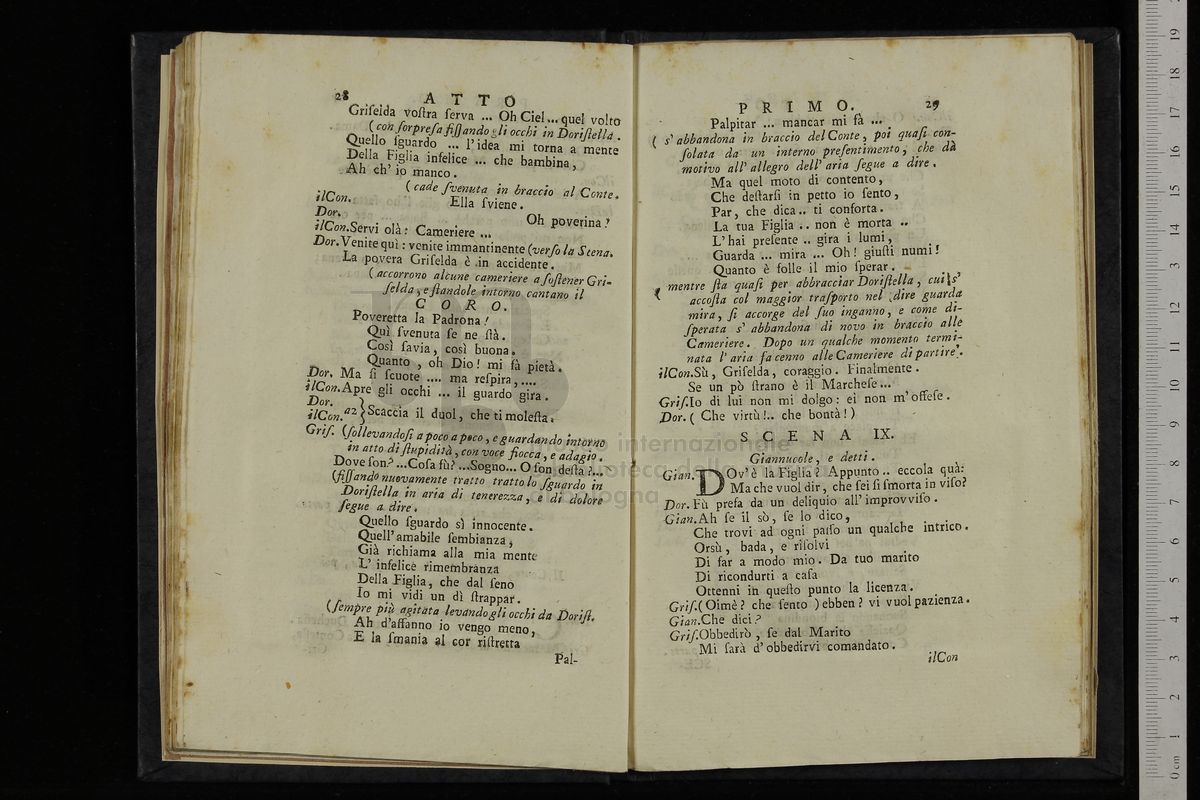 28 ATTO
Griſelda voſtra ſerva ... Oh Ciel... quel volto
(con ſorpreſa fiſſando gli occhi in Doriſtella.
Quello ſguardo ... l'idea mi torna a mente
Della Figlia infelice ... che bambina,
Ah ch' io manco.
(cade ſvenuta in braccio al Conte.
ilCon. Ella ſviene.
Dor. Oh poverina!
ilCon.Servi olà: Cameriere ...
Dor.Venite quì: venite immantinente (verſo la Stena.
La povera Griſelda è in accidente.
(accorrono alcune cameriere a ſoſtener Gri-
ſelda, e ſtandole intorno cantano il
CORO.
Poveretta la Padrona!
Quì ſvenuta ſe ne ſtà.
Così ſavia, così buona.
Quanto, oh Dio! mi fà pietà.
Dor. Ma ſi ſcuote .... ma reſpira,....
ilCon.Apre gli occhi ... il guardo gira.
Dor.
ilCon. a2 } Scaccia il duol, che ti moleſta.
Griſ. (ſollevandoſi a poco a poco, e guardando intorno
in atto di ſtupidità, con voce fiocca, e adagio.
Dove ſon?...Coſa fù?...Sogno...O ſon deſta?...
(fiſſando nuovamente tratto tratto lo ſguardo in
Doriſtella in aria di tenerezza, e di dolore
ſegue a dire.
Quello ſguardo sì innocente.
Quell'amabile ſembianza,
Già richiama alla mia mente
L' infelice rimembranza
Della Figlia, che dal ſeno
Io mi vidi un dì ſtrappar.
(ſempre più agitata levando gli occhi da Doriſt.
Ah d'affanno io vengo meno,
E la ſmania al cor riſtretta
Pal-
PRIMO. 29
Palpitar ... mancar mi fà ...
( s' abbandona in braccio del Conte, poi quaſi con-
ſolata da un interno preſentimento, che dà
motivo all' allegro dell' aria ſegue a dire.
Ma quel moto di contento,
Che deſtarſi in petto io ſento,
Par, che dica.. ti conforta.
La tua Figlia .. non è morta ..
L'hai preſente .. gira i lumi,
Guarda ... mira ... Oh! giuſti numi!
Quanto è folle il mio ſperar.
( mentre ſta quaſi per abbracciar Doriſtella, cui s'
accoſta col maggior traſporto nel dire guarda
mira, ſi accorge del ſuo inganno, e come di-
ſperata s' abbandona di novo in braccio alle
Cameriere. Dopo un qualche momento termi-
nata l' aria fa cenno alle Cameriere di partire.
ilCon.Sù, Griſelda, coraggio. Finalmente.
Se un pò ſtrano è il Marcheſe...
Griſ.Io di lui non mi dolgo: ei non m'offeſe.
Dor. ( Che virtù!.. che bontà!)
SCENA IX.
Giannucole, e detti.
Gian. DOv'è la Figlia? Appunto.. eccola quà:
Ma che vuol dir, che ſei ſi ſmorta in viſo?
Dor. Fù preſa da un deliquio all'improvviſo.
Gian.Ah ſe il sò, ſe lo dico,
Che trovi ad ogni paſſo un qualche intrico.
Orsù, bada, e riſolvi
Di far a modo mio. Da tuo marito
Di ricondurti a caſa
Ottenni in queſto punto la licenza.
Griſ.(Oimè? che ſento) ebben? vi vuol pazienza.
Gian.Che dici?
Griſ.Obbedirò, ſe dal Marito
Mi ſarà d'obbedirvi comandato.
ilCon